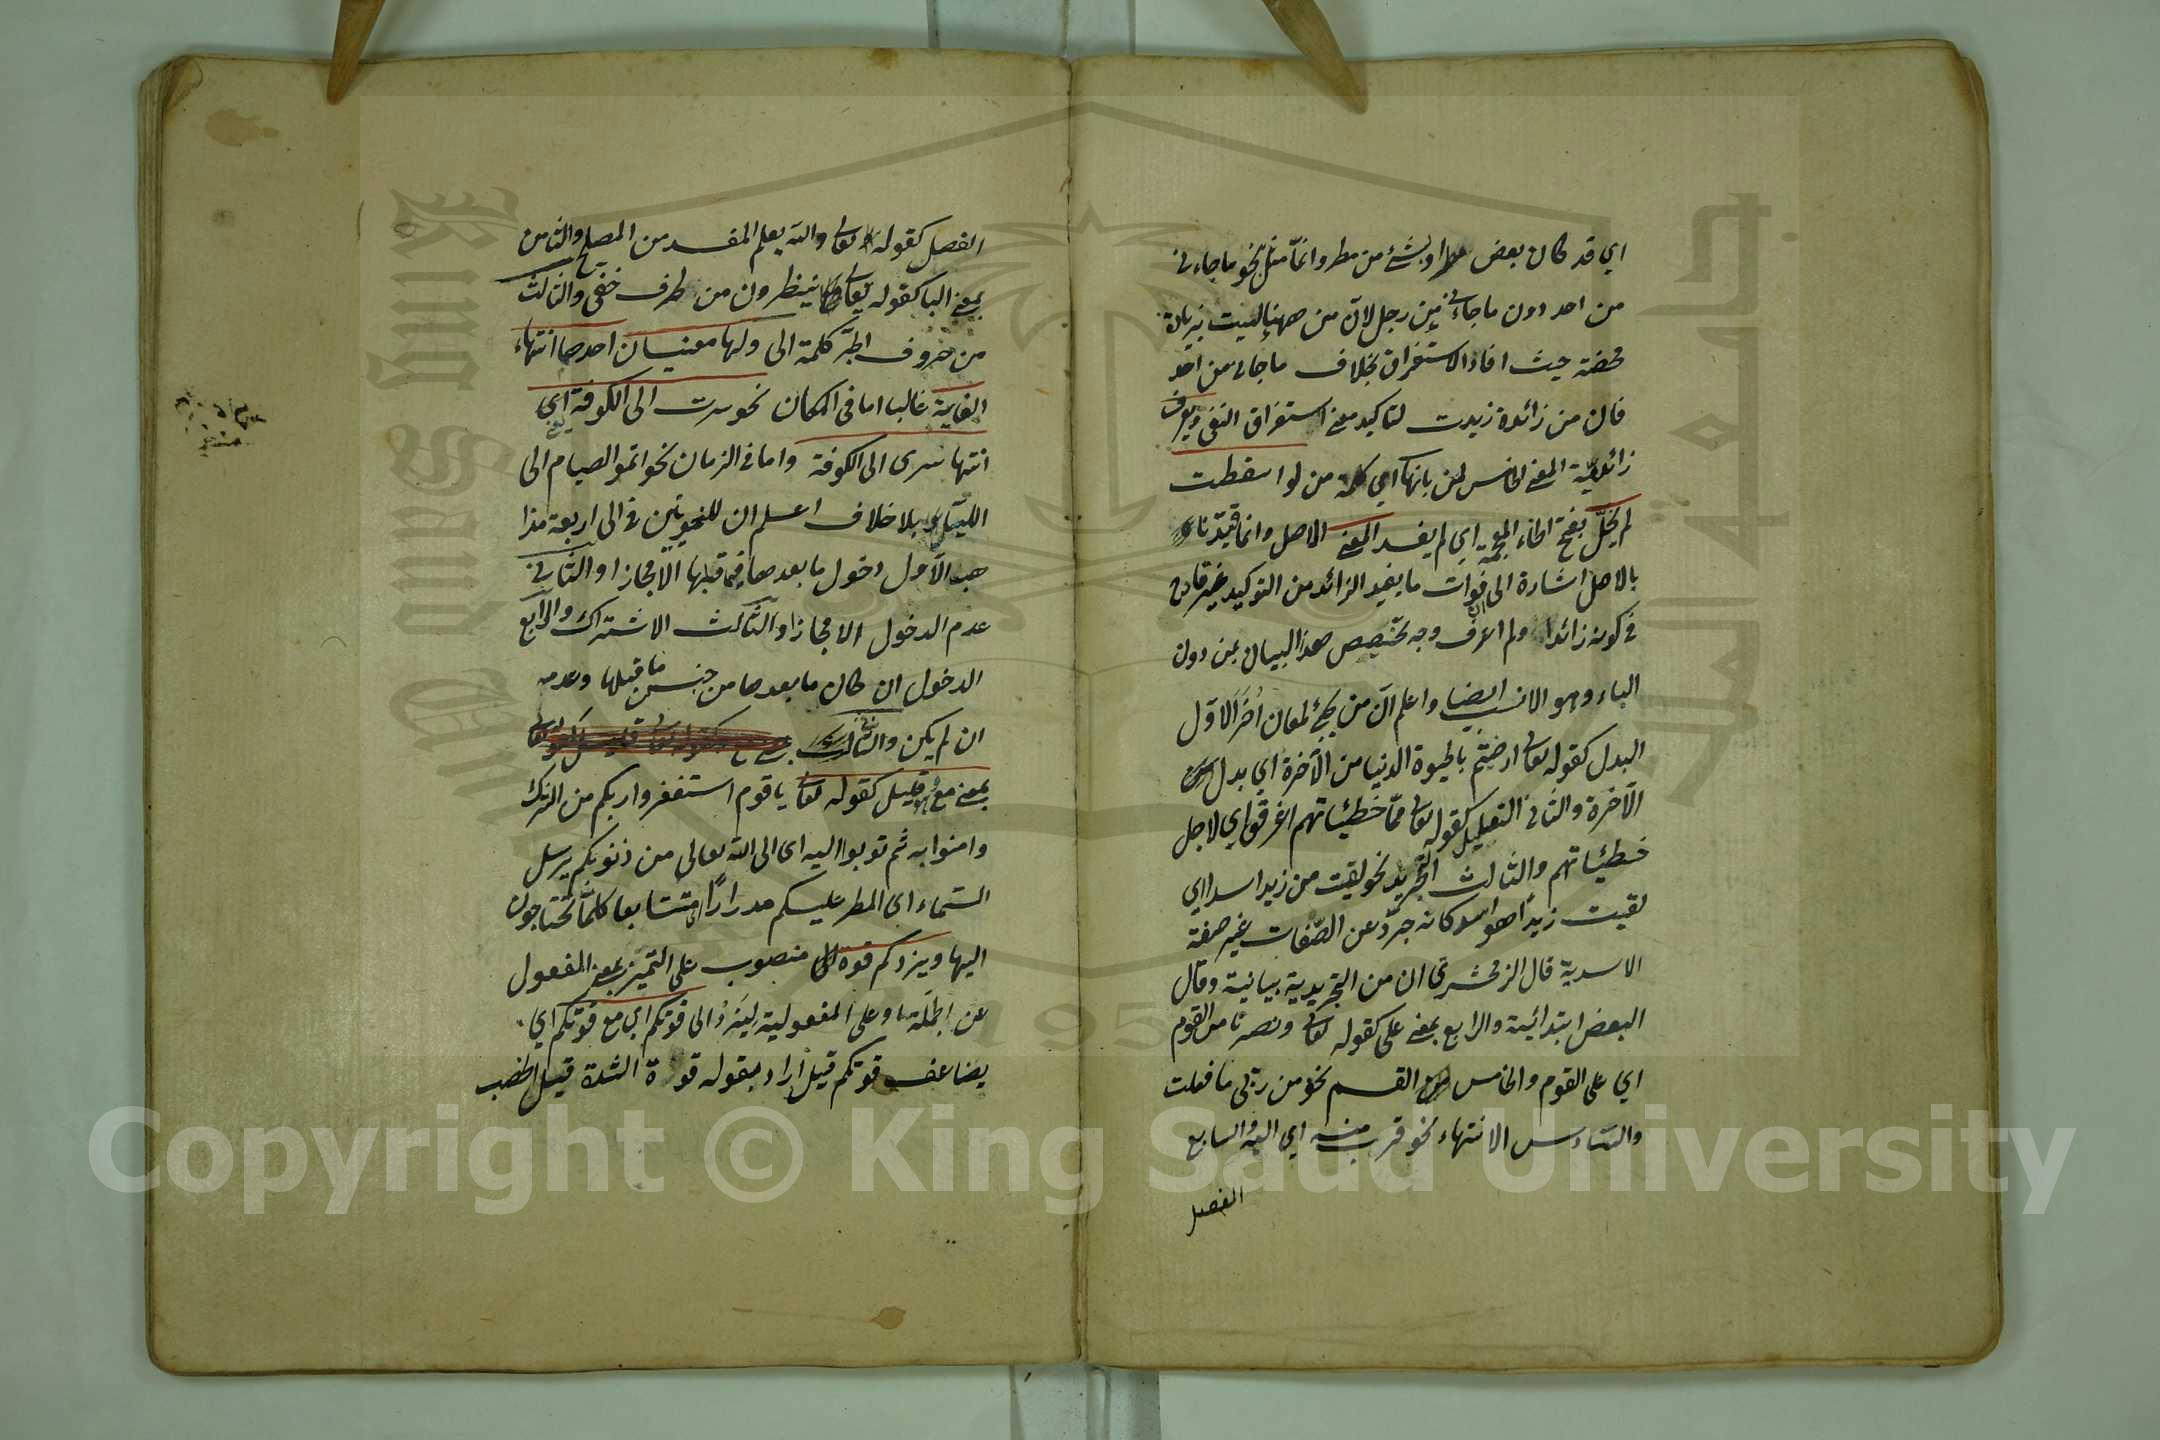 اي قد كان بعض مطر او شئ من مطر وانما مثل بنحو ما جاءني
من احد دون ما جاءني من رجل لان من ههنا ليست بزيادة
محضة حيث افاد الاستغراق بخلاف ما جاءني من احد
فان من زائدة زيدت لتاكيد معنى استغراق النفي ويعرف
زائدية المعنى الخامس لمن بانها اي كلمة من لو اسقطت
لم يخلّ بفتح الخاء المعجمة اي لم يفسد المعنى الاصل وانما قيدنا
بالاصل اشارة الى فوات ما يفيد الزائد من التوكيد غير قادح
في كونه زائدا ولم اعرف وجه تخصيص هذا البيان بمن دون
الباء وهو الانسب ايضا واعلم انّ من يجئ لمعان أخر الاوّل
البدل كقوله تعالى ارضيتم بالحيوة الدنيا من الآخرة اي بدل
الآخرة والثاني التعليل كقوله تعالى ممّا خطيئاتهم اغرقوا اي لاجل
خطيئاتهم والثالث التجريد نحو لقيت من زيد اسدا اي
لقيت زيدا هو اسد كانه جرّد عن الصّفات غير صفة
الاسديّة قال الزمخشرى ان من التجريدية بيانية وقال
البعض ابتدائية والرابع بمعنى على كقوله تعالى ونصرناه من القوم
اي على القوم والخامس القسم نحو من ربّى ما فعلت
والسّادس الانتهاء نحو قرب منه اي اليه والسابع
الفصل
الفصل كقوله تعالى والله يعلم المفسد من المصلح والثامن
بمعنى البا كقوله تعالى ينظرون من طرف خفي والثالث
من حروف الجرّ كلمة الى ولها معنيان احدهما انتهاء
الغاية غالبا اما في المكان نحو سرت الى الكوفة اي
انتها سيرى الى الكوفة واما في الزمان نحو اتموا الصيام الى
الليل بلا خلاف اعلم ان للنحويّين في الى اربعة مذا
هب الاول دخول ما بعدها فيما قبلها الا مجازا والثانى
عدم الدخول الا مجازا والثالث الاشتراك والرابع
الدخول ان كان ما بعدها من جنس ما قبلها وعدمه
ان لم يكن والثانى
بمعنى مع قليل كقوله تعالى يا قوم استغفروا ربكم من الشرك
وامنوا به ثم توبوا اليه اى الى الله تعالى من ذنوبكم يرسل
السّماء اى المطر عليكم مدرارا متتابعا كلمّا تحتاجون
اليها ويزدكم قوة منصوب على التميز بمعنى المفعول
عن الجملة وعلى المفعولية ليزد الى قوتكم اي مع قوتكم اي
يضاعف قوتكم قيل اراد بقوله قوة الشدة قيل الخصب
Copyright © King Saud University
King Saud University
جامعة الملك
1957